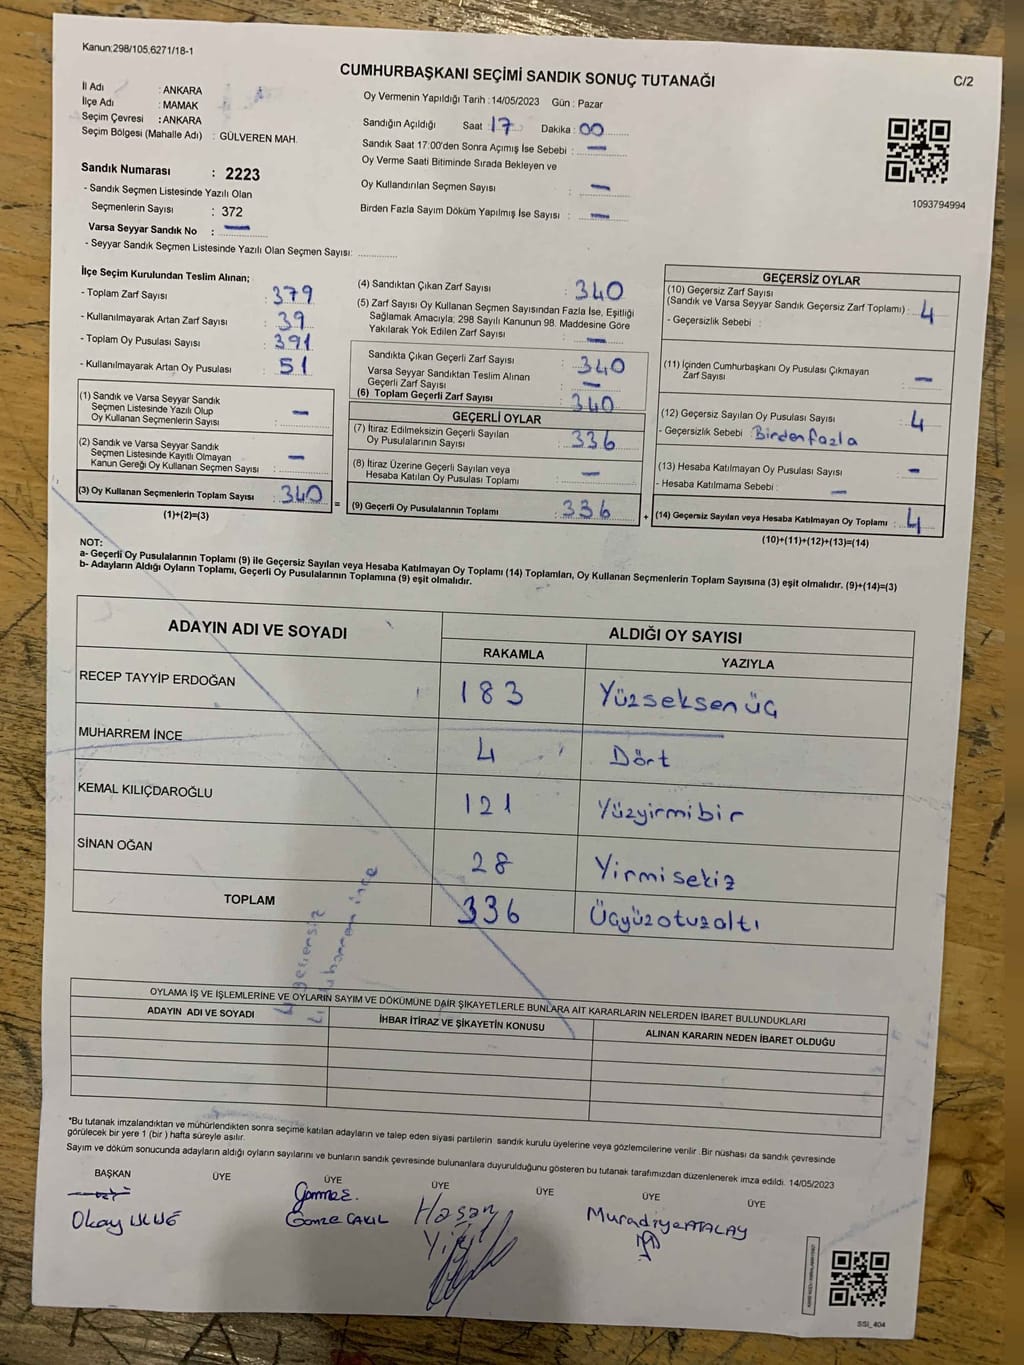 Kanun:298/105,6271/18-1
CUMHURBAŞKANI SEÇİMİ SANDIK SONUÇ TUTANAĞI
C/2
İl Adı : ANKARA
İlçe Adı : MAMAK
Seçim Çevresi : ANKARA
Seçim Bölgesi (Mahalle Adı) : GÜLVEREN MAH.
Oy Vermenin Yapıldığı Tarih : 14/05/2023 Gün : Pazar
Sandığın Açıldığı Saat : 17 Dakika : 00
Sandık Saat 17:00'den Sonra Açımış İse Sebebi : —
Oy Verme Saati Bitiminde Sırada Bekleyen ve
Oy Kullandırılan Seçmen Sayısı : —
Birden Fazla Sayım Döküm Yapılmış İse Sayısı : —
1093794994
Sandık Numarası : 2223
- Sandık Seçmen Listesinde Yazılı Olan
Seçmenlerin Sayısı : 372
Varsa Seyyar Sandık No : —
- Seyyar Sandık Seçmen Listesinde Yazılı Olan Seçmen Sayısı:
İlçe Seçim Kurulundan Teslim Alınan;
- Toplam Zarf Sayısı : 379
- Kullanılmayarak Artan Zarf Sayısı : 39
- Toplam Oy Pusulası Sayısı : 391
- Kullanılmayarak Artan Oy Pusulası : 51
(1) Sandık ve Varsa Seyyar Sandık
Seçmen Listesinde Yazılı Olup
Oy Kullanan Seçmenlerin Sayısı : —
(2) Sandık ve Varsa Seyyar Sandık
Seçmen Listesinde Kayıtlı Olmayan
Kanun Gereği Oy Kullanan Seçmen Sayısı : —
(3) Oy Kullanan Seçmenlerin Toplam Sayısı : 340
(1)+(2)=(3)
(4) Sandıktan Çıkan Zarf Sayısı : 340
(5) Zarf Sayısı Oy Kullanan Seçmen Sayısından Fazla İse, Eşitliği
Sağlamak Amacıyla; 298 Sayılı Kanunun 98. Maddesine Göre
Yakılarak Yok Edilen Zarf Sayısı : —
Sandıkta Çıkan Geçerli Zarf Sayısı : 340
Varsa Seyyar Sandıktan Teslim Alınan
Geçerli Zarf Sayısı : —
(6) Toplam Geçerli Zarf Sayısı : 340
GEÇERLİ OYLAR
(7) İtiraz Edilmeksizin Geçerli Sayılan
Oy Pusulalarının Sayısı : 336
(8) İtiraz Üzerine Geçerli Sayılan veya
Hesaba Katılan Oy Pusulası Toplamı : —
= (9) Geçerli Oy Pusulalarının Toplamı : 336
GEÇERSİZ OYLAR
(10) Geçersiz Zarf Sayısı
(Sandık ve Varsa Seyyar Sandık Geçersiz Zarf Toplamı) : 4
- Geçersizlik Sebebi :
(11) İçinden Cumhurbaşkanı Oy Pusulası Çıkmayan
Zarf Sayısı : —
(12) Geçersiz Sayılan Oy Pusulası Sayısı : 4
- Geçersizlik Sebebi : Birden fazla
(13) Hesaba Katılmayan Oy Pusulası Sayısı : —
- Hesaba Katılmama Sebebi : —
+ (14) Geçersiz Sayılan veya Hesaba Katılmayan Oy Toplamı : 4
(10)+(11)+(12)+(13)=(14)
NOT:
a- Geçerli Oy Pusulalarının Toplamı (9) ile Geçersiz Sayılan veya Hesaba Katılmayan Oy Toplamı (14) Toplamları, Oy Kullanan Seçmenlerin Toplam Sayısına (3) eşit olmalıdır. (9)+(14)=(3)
b- Adayların Aldığı Oyların Toplamı, Geçerli Oy Pusulalarının Toplamına (9) eşit olmalıdır.
ADAYIN ADI VE SOYADI ALDIĞI OY SAYISI
RAKAMLA YAZIYLA
RECEP TAYYİP ERDOĞAN 183 Yüzseksenüç
MUHARREM İNCE 4 Dört
KEMAL KILIÇDAROĞLU 121 Yüzyirmibir
SİNAN OĞAN 28 Yirmisekiz
TOPLAM 336 Üçyüzotuzaltı
4 geçersiz
4 muharrem ince
OYLAMA İŞ VE İŞLEMLERİNE VE OYLARIN SAYIM VE DÖKÜMÜNE DAİR ŞİKAYETLERLE BUNLARA AİT KARARLARIN NELERDEN İBARET BULUNDUKLARI
ADAYIN ADI VE SOYADI İHBAR İTİRAZ VE ŞİKAYETİN KONUSU ALINAN KARARIN NEDEN İBARET OLDUĞU
*Bu tutanak imzalandıktan ve mühürlendikten sonra seçime katılan adayların ve talep eden siyasi partilerin sandık kurulu üyelerine veya gözlemcilerine verilir. Bir nüshası da sandık çevresinde
görülecek bir yere 1 (bir) hafta süreyle asılır.
Sayım ve döküm sonucunda adayların aldığı oyların sayılarını ve bunların sandık çevresinde bulunanlara duyurulduğunu gösteren bu tutanak tarafımızdan düzenlenerek imza edildi. 14/05/2023
BAŞKAN ÜYE ÜYE ÜYE ÜYE ÜYE ÜYE
Okay Hasan
Gamze ÇAKIL Muradiye ATALAY
SSİ_404